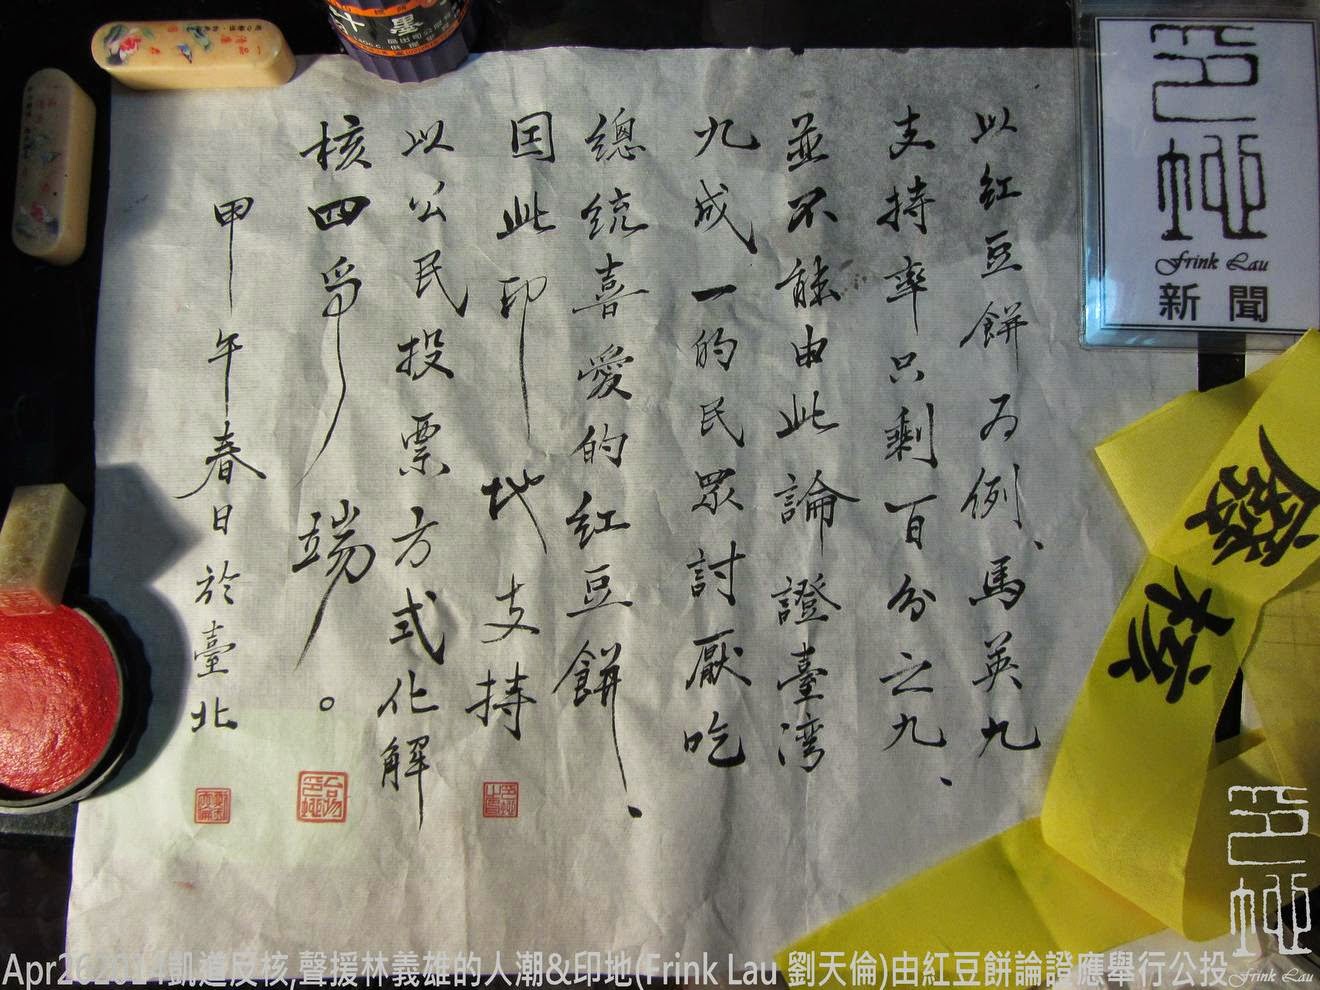 以紅豆餅為例、馬英九
支持率只剩百分之九、
並不能由此論證臺灣
九成一的民眾討厭吃
總統喜愛的紅豆餅、
因此印地支持
以公民投票方式化解
核四爭端。
甲午春日於臺北
墨汁
印地
Frink Lau
新聞
廢核
印地
Frink Lau
Apr262014凱道反核,聲援林義雄的人潮&印地(Frink Lau 劉天倫)由紅豆餅論證應舉行公投